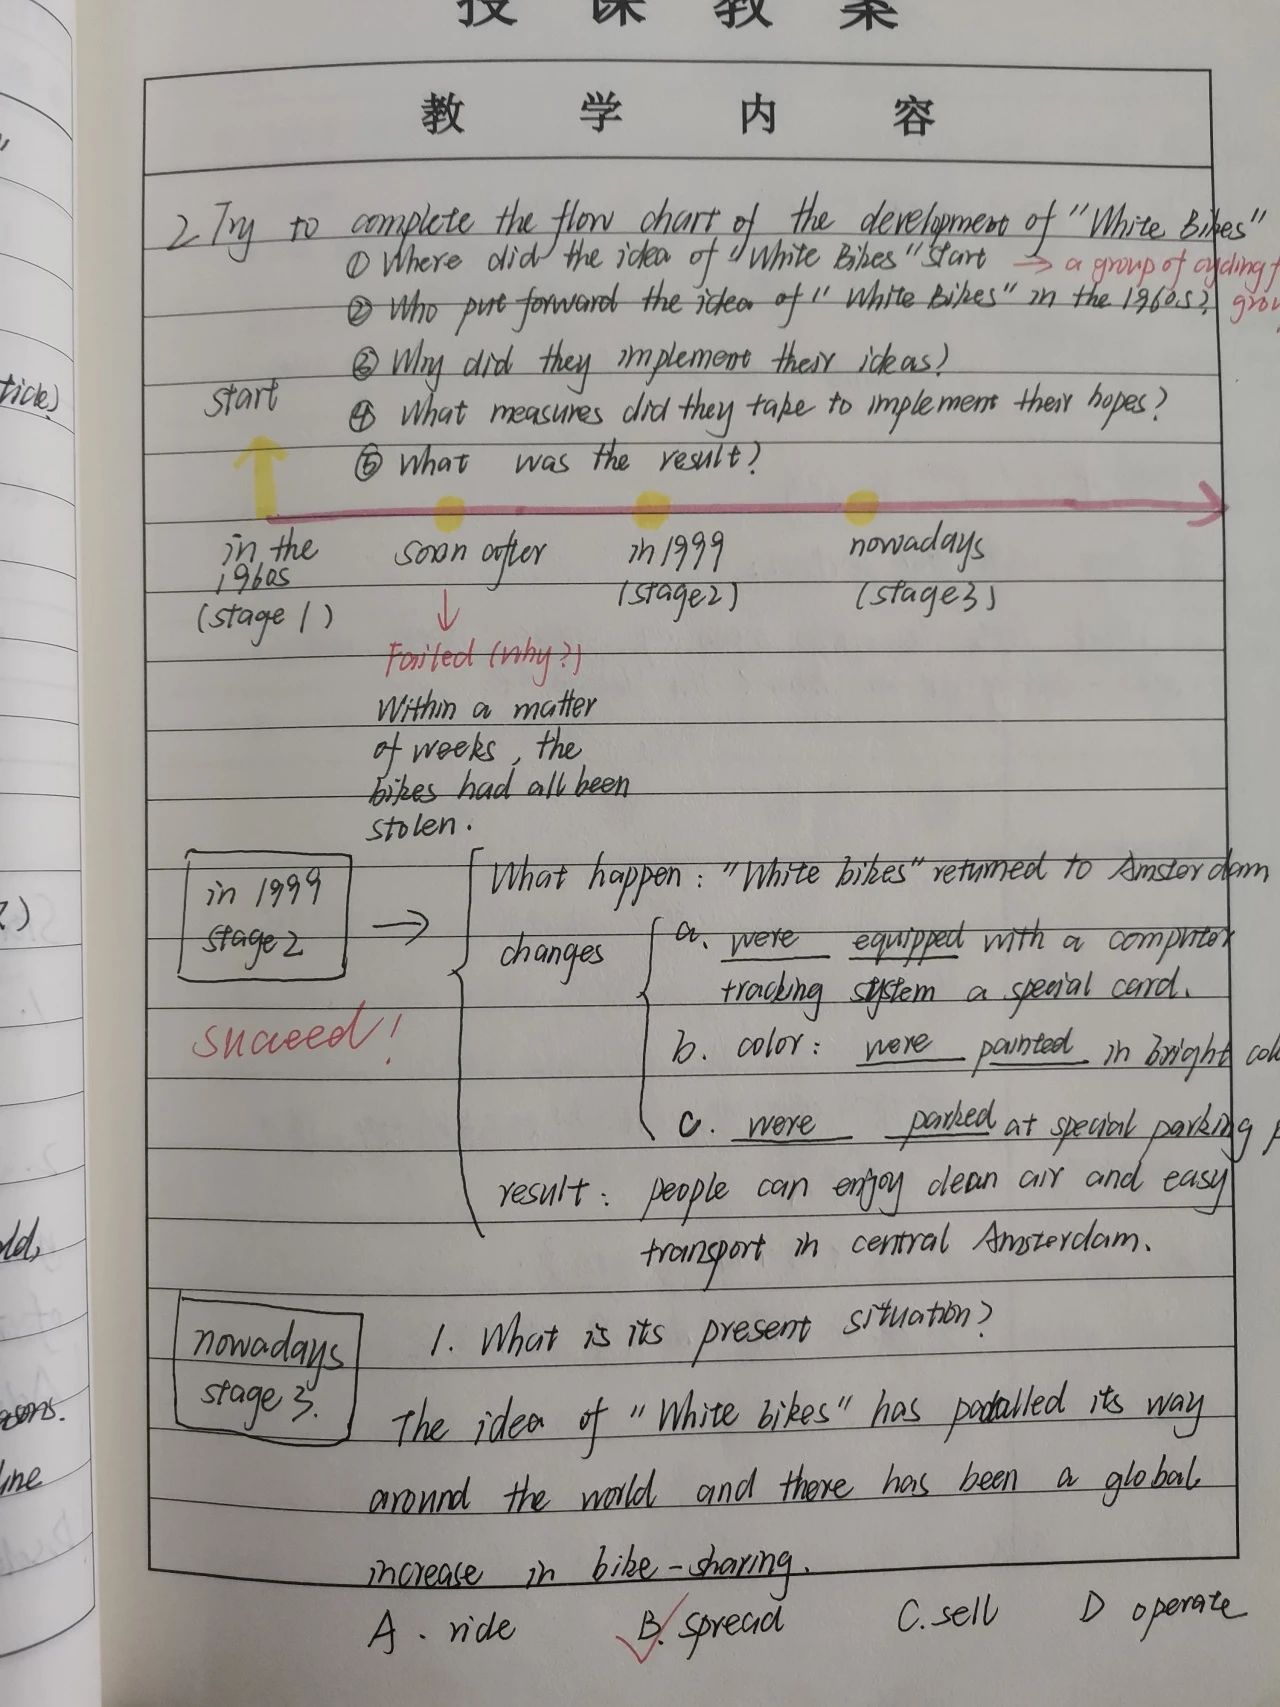 授 课 教 案
教 学 内 容
2 Try to complete the flow chart of the development of "White Bikes"
① Where did the idea of "White Bikes" start → a group of cycling
② Who put forward the idea of "White Bikes" in the 1960s?
③ Why did they implement their ideas?
start
④ What measures did they take to implement their hopes?
⑤ What was the result?
in the 1960s (stage 1)
soon after
in 1999 (stage2)
nowadays (stage3)
Failed (why?)
Within a matter
of weeks, the
bikes had all been
stolen.
in 1999
stage2
succeed!
What happen: "White bikes" returned to Amsterdam
changes
a. were equipped with a computer
tracking system a special card.
b. color: were painted in bright
c. were parked at special parking
result: people can enjoy clean air and easy
transport in central Amsterdam.
nowadays
stage 3.
1. What is its present situation?
The idea of "White bikes" has padalled its way
around the world and there has been a global
increase in bike-sharing.
A. ride B. spread C. sell D operate